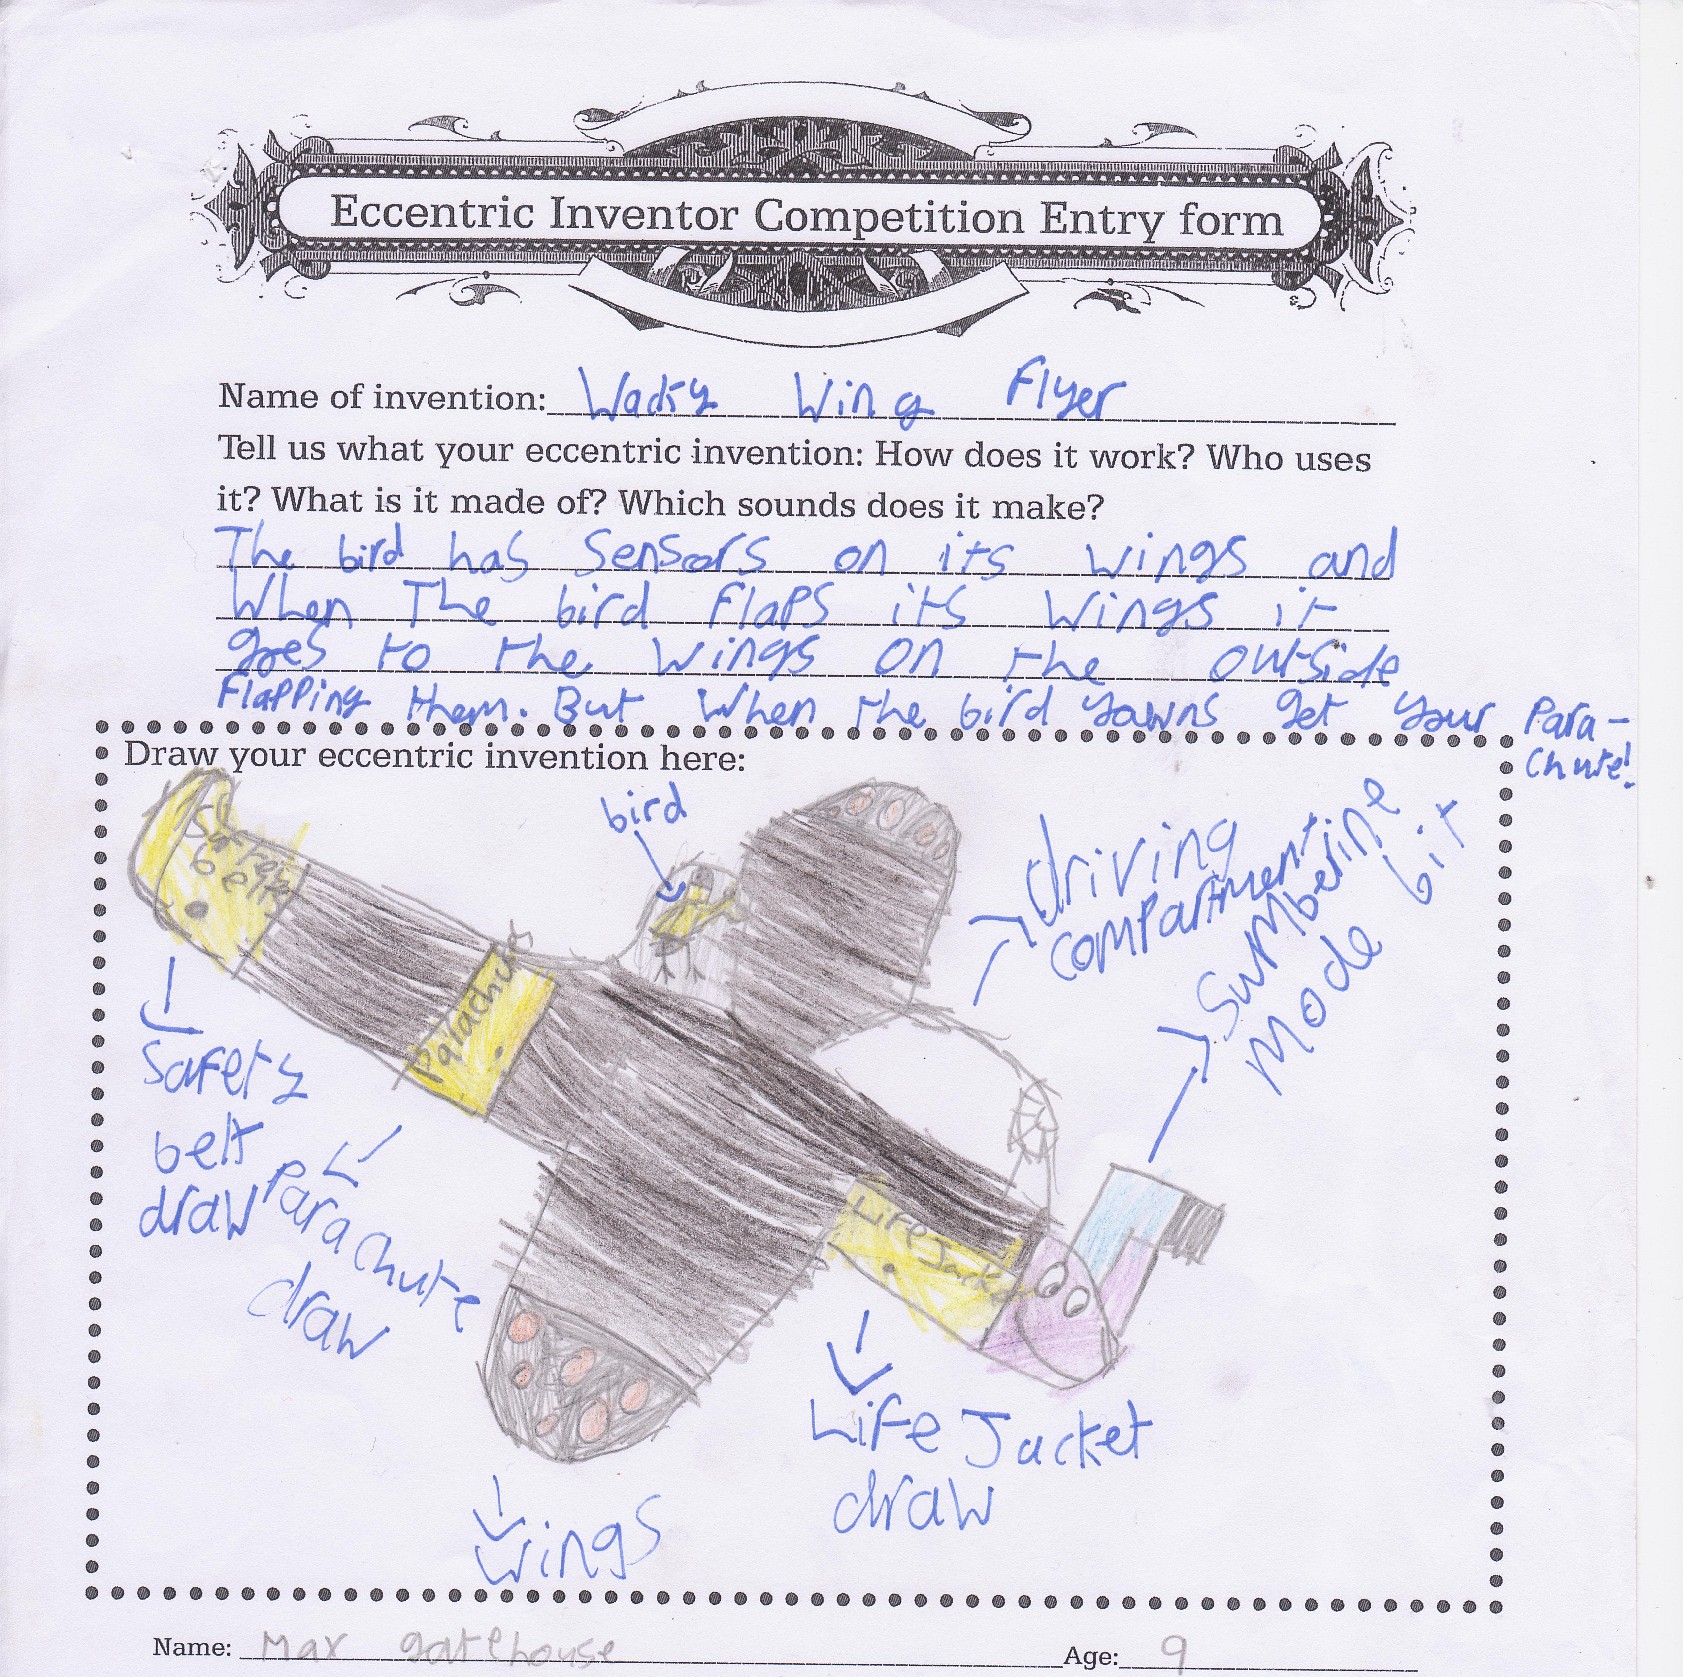 Eccentric Inventor Competition Entry form
Name of invention: Wacky Wing Flyer
Tell us what your eccentric invention: How does it work? Who uses
it? What is it made of? Which sounds does it make?
The bird has sensors on its wings and
When The bird flaps its wings it
goes to the wings on the outside
Flapping them. But when the bird yawns get your Para-
chute!
Draw your eccentric invention here:
bird
driving
compartment
sumberine
mode bit
Safety
belts
Parachutes
Life Jacket
safety
belt
draw
Parachute
draw
Life Jacket
draw
wings
Name: Max gatehouse
Age: 9